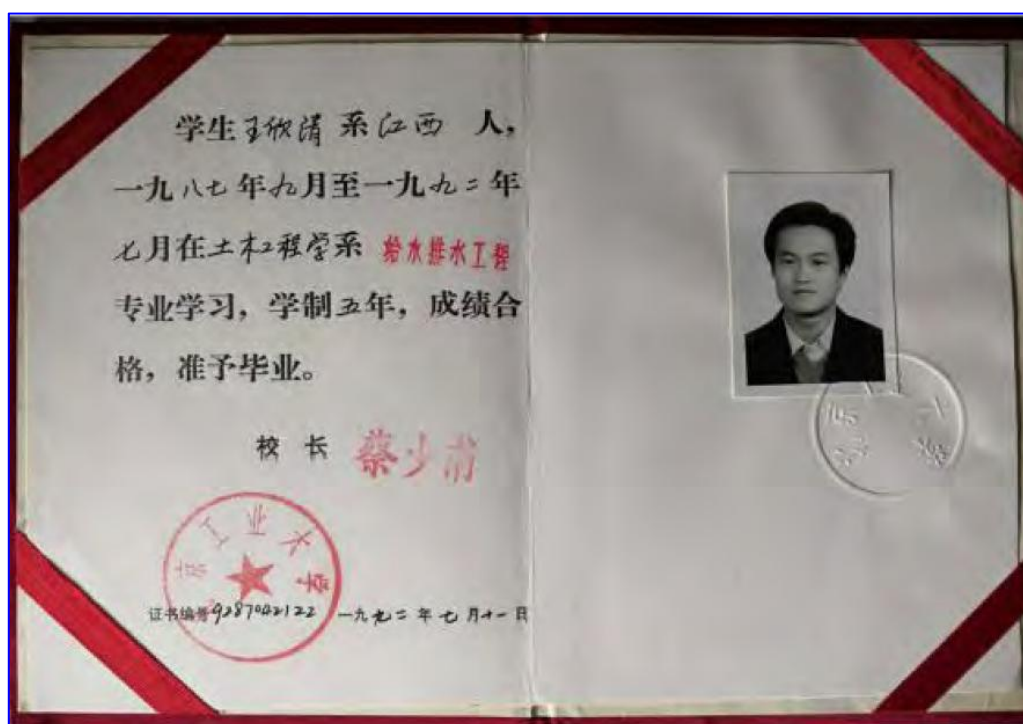 学生王欣清系江西 人，
一九八七年九月至一九九二年
七月在土木工程学系 给水排水工程
专业学习，学制五年，成绩合
格，准予毕业。
校 长 蔡少甫
京工业大学
证书编号9287042122 一九九二年七月十一日